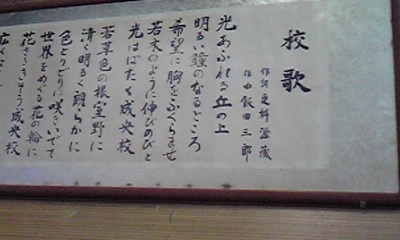 校歌
作詞 更科源蔵
作曲 飯田三郎
光あふれる丘の上
明るい鐘のなるところ
希望に胸をふくらませ
若木のように伸びのびと
光はばたく成央校
若草色の根室野に
清く明るく朗らかに
色とりどりに咲きいでて
世界をめぐる花の輪に
花さきそう成央校